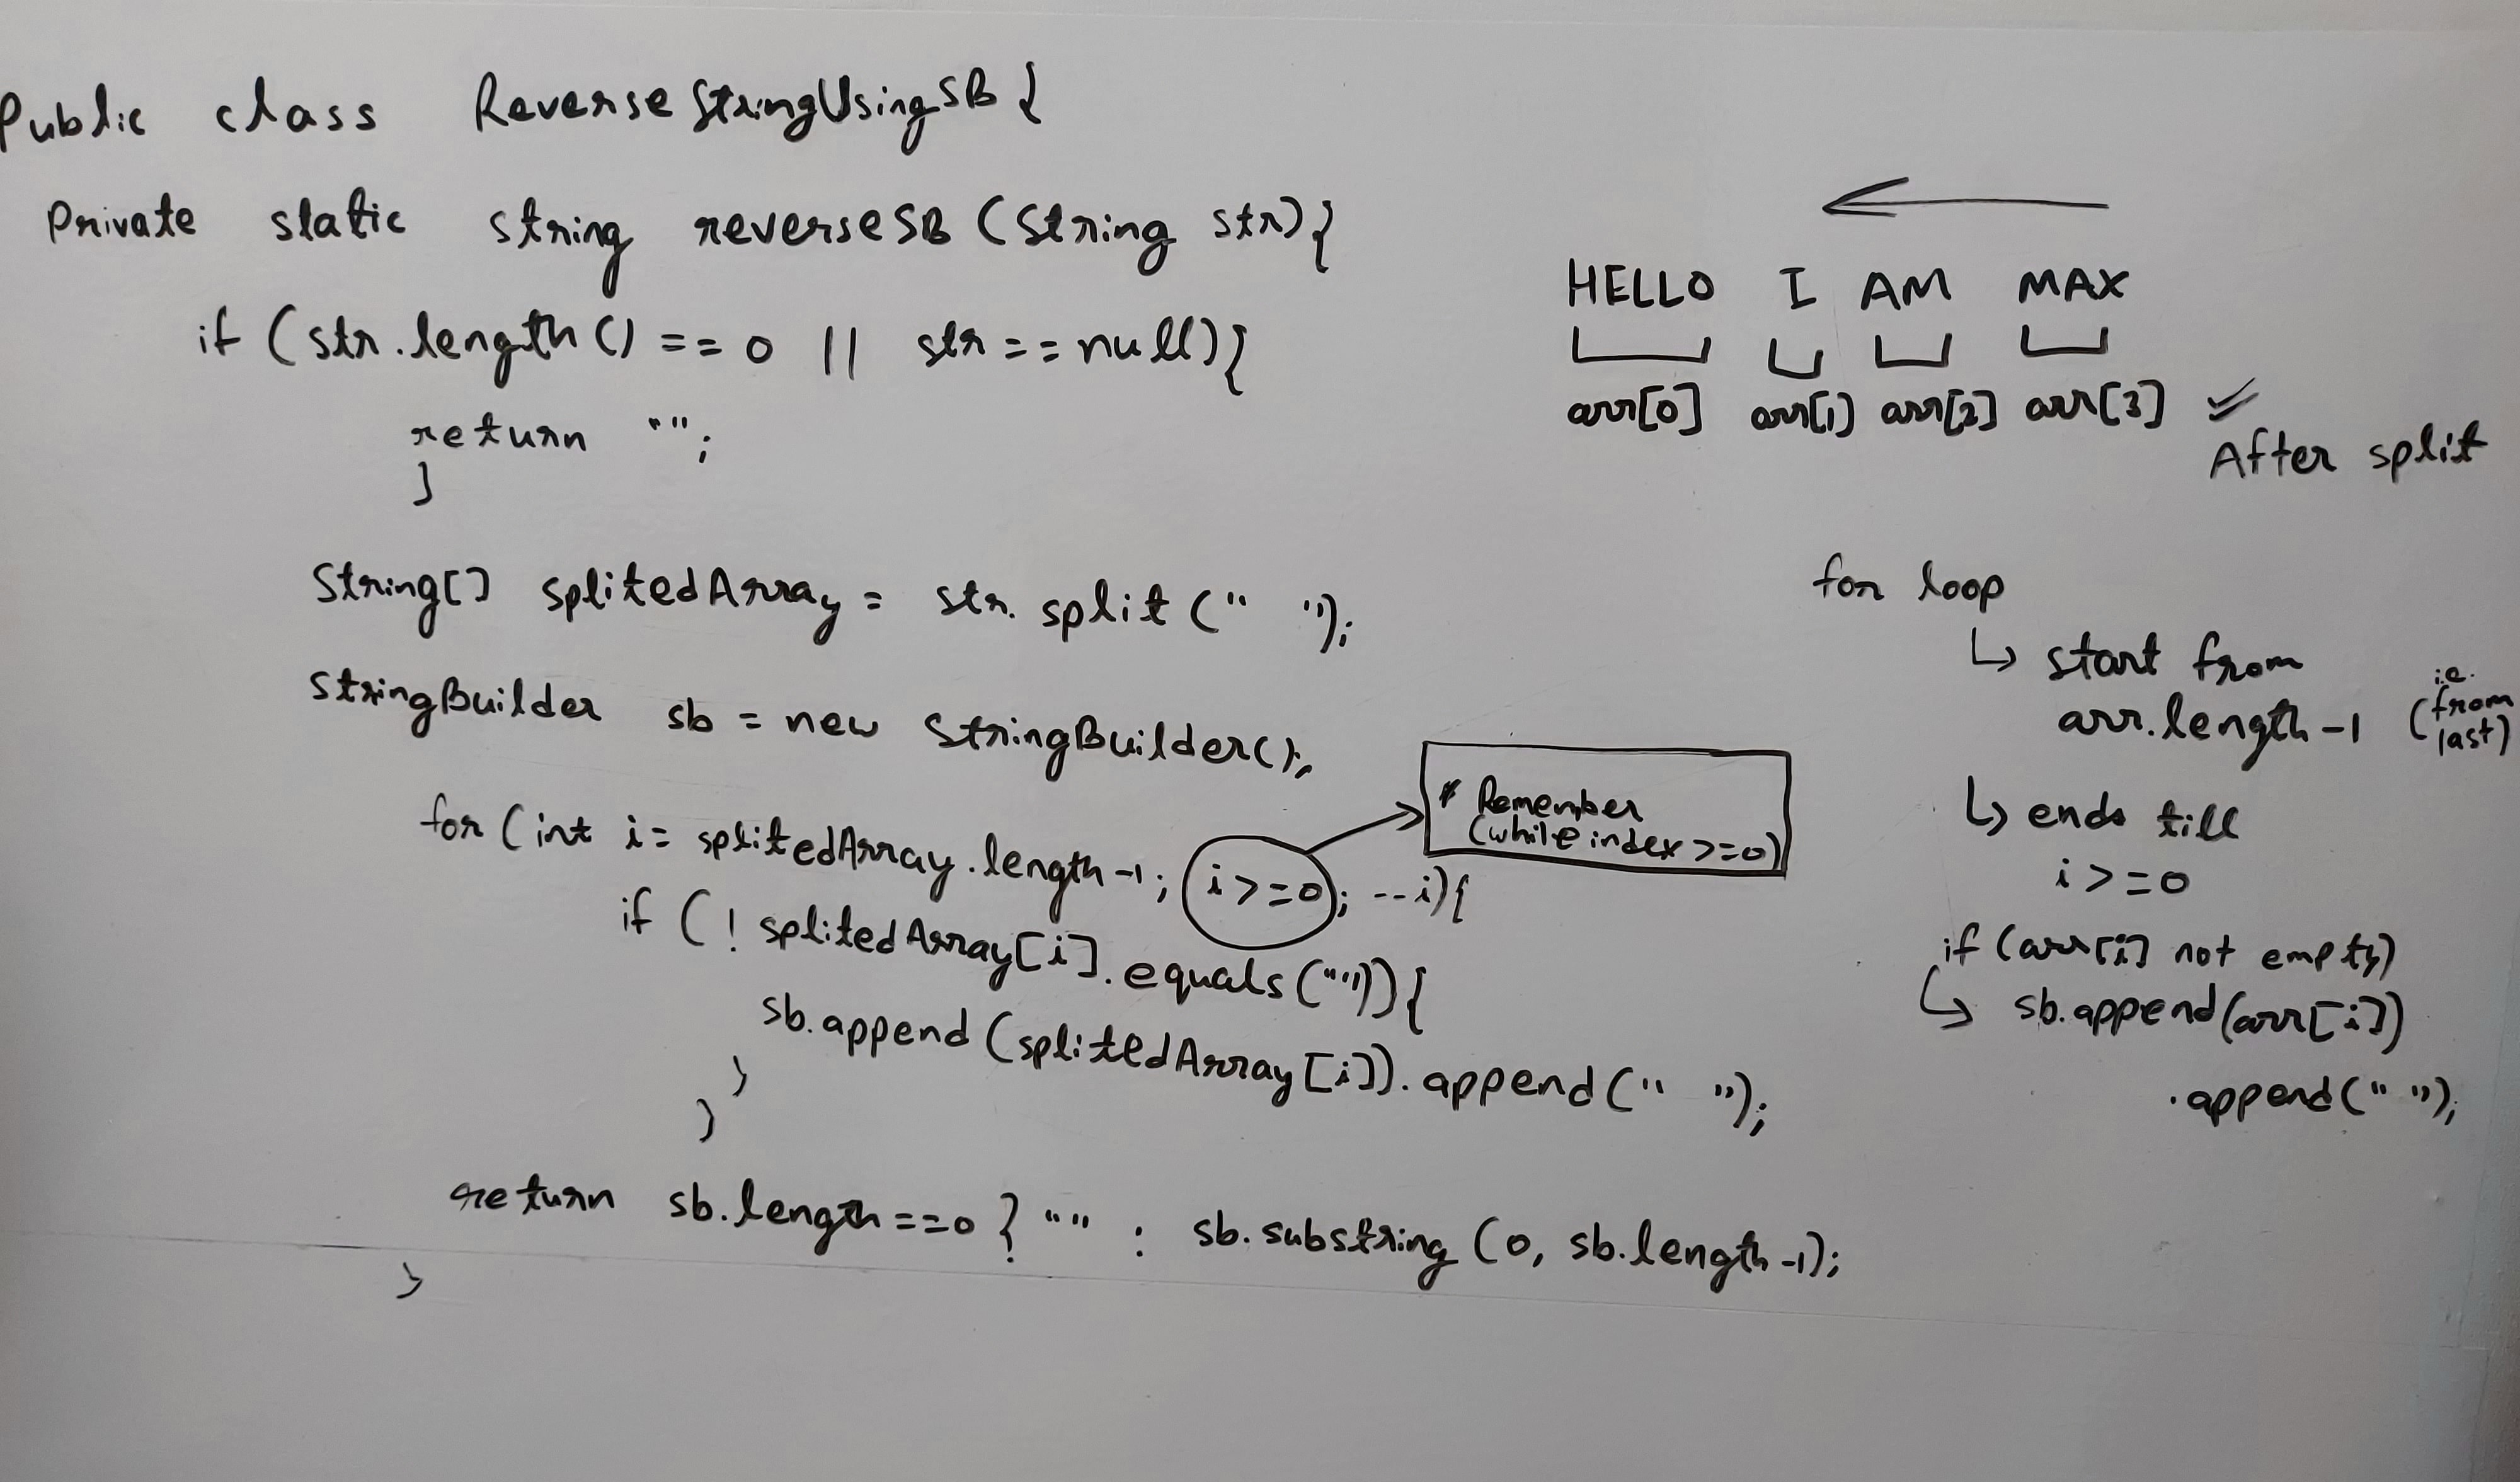 Public class ReverseStringUsingSB {
Private static string reverseSB (String str){
if (str.length() == 0 || str == null){
return "";
}
String[] splitedArray = str.split(" ");
StringBuilder sb = new StringBuilder();
for (int i = splitedArray.length-1; i>=0; --i){
if (! splitedArray[i].equals("")){
sb.append(splitedArray[i]).append(" ");
}
}
return sb.length==0 ? "" : sb.substring (0, sb.length-1);
}
* Remember
(while index >=0)
HELLO I AM MAX
arr[0] arr[1] arr[2] arr[3]
After split
for loop
↳ start from
arr.length-1 (i.e. from last)
↳ ends till
i >=0
if (arr[i] not empty)
↳ sb.append(arr[i])
.append(" ");